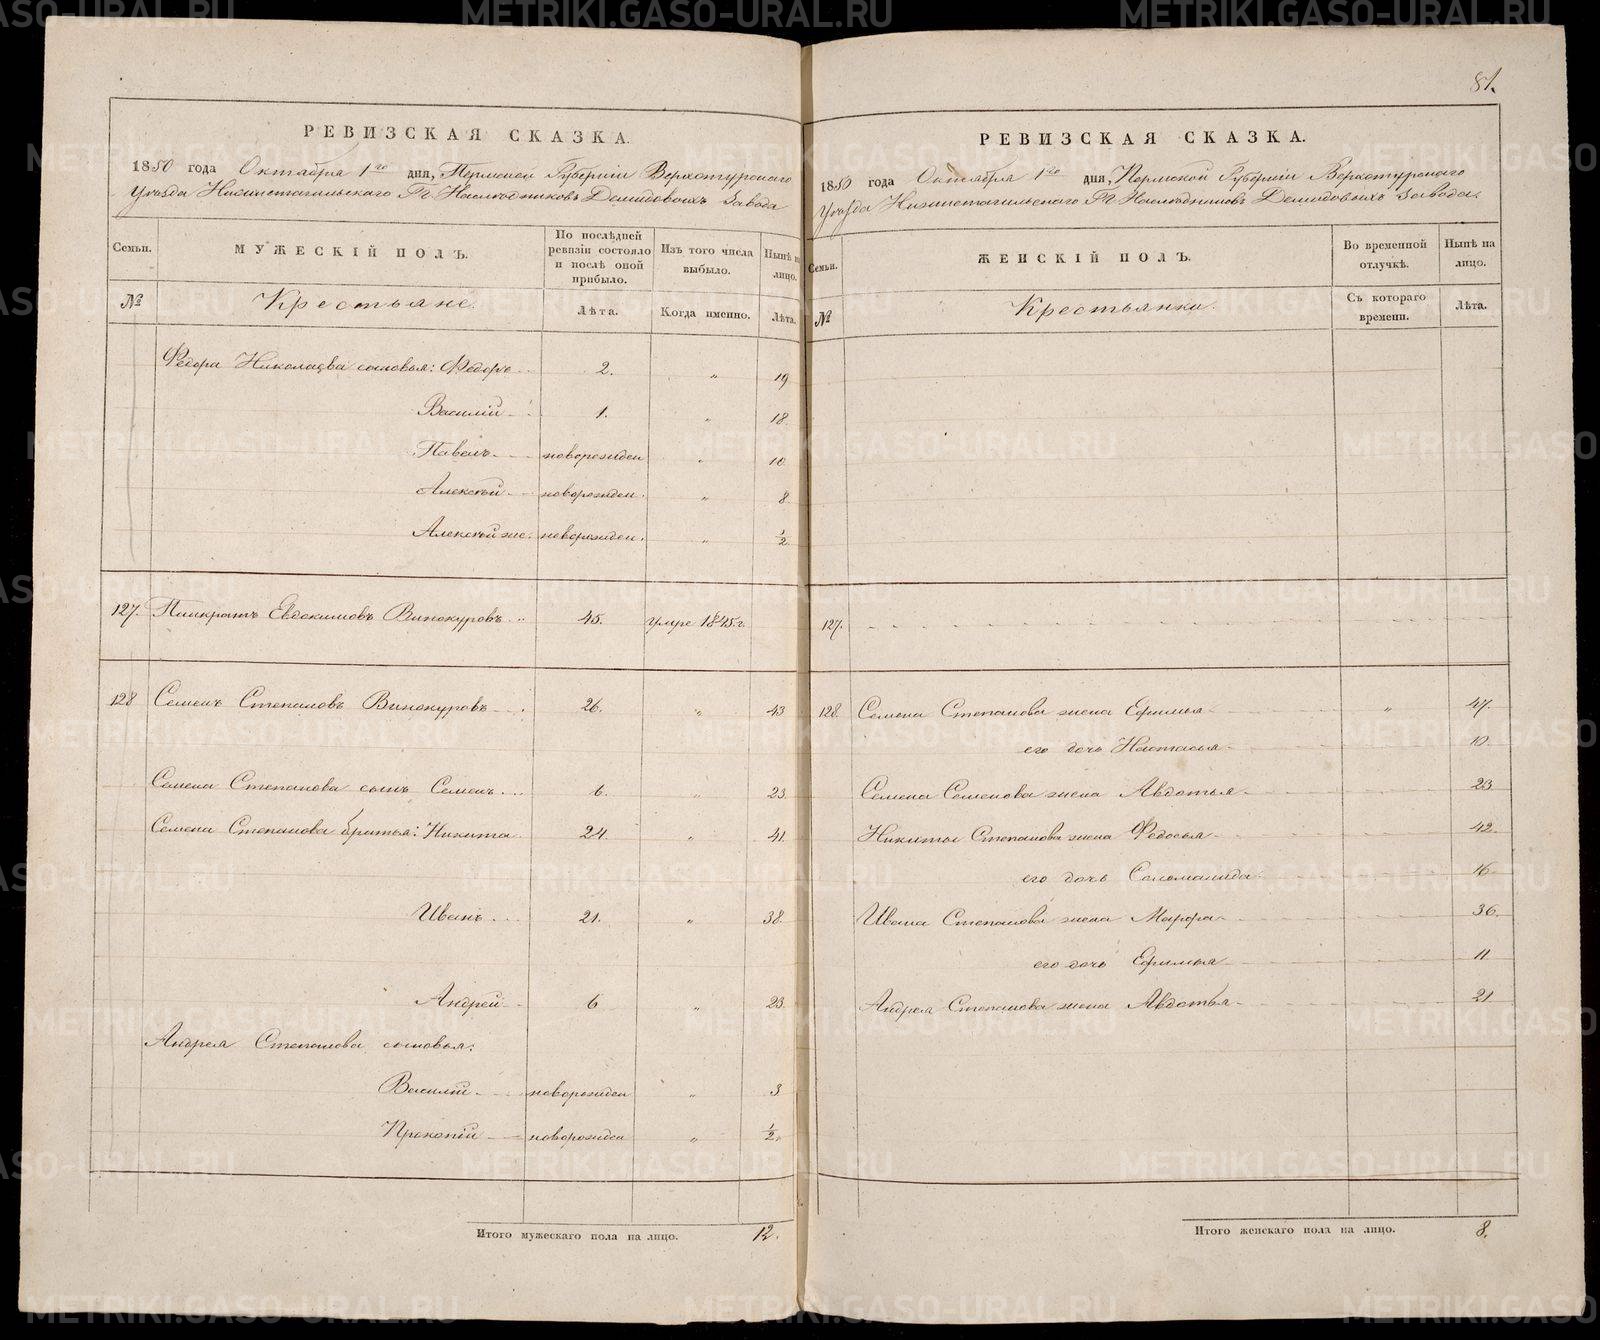 81.
РЕВИЗСКАЯ СКАЗКА.
1850 года Октября 1го дня, Пермской Губерніи Верхотурскаго
Уѣзда Нижнетагильскаго Гг. Наслѣдниковъ Демидовыхъ Завода
Семьи. МУЖЕСКІЙ ПОЛЪ. По послѣдней ревизіи состояло и послѣ оной прибыло. Изъ того числа выбыло. Нынѣ на лицо.
№ Крестьяне. Лѣта. Когда именно. Лѣта.
Федора Николаева сыновья: Федоръ 2. " 19
Василій 1. " 18
Павелъ новорожден " 10
Алексѣй новорожден. " 8
Алексѣй же новорожден. " 1/2
127. Панкратъ Евдокимовъ Винокуровъ 45. умре 1845 г.
128 Семенъ Степановъ Винокуровъ 26. " 43
Семена Степанова сынъ Семенъ 6. " 23
Семена Степанова братья: Никита 24. " 41.
Иванъ 21. " 38.
Андрей 6 " 23
Андрея Степанова сыновья:
Василій новорожден " 3
Прокопій новорожден " 1/2.
Итого мужескаго пола на лицо. 12.
РЕВИЗСКАЯ СКАЗКА.
1850 года Октября 1го дня, Пермской Губерніи Верхотурскаго
Уѣзда Нижнетагильскаго Гг. Наслѣдниковъ Демидовыхъ Завода.
Семьи. ЖЕНСКІЙ ПОЛЪ. Во временной отлучкѣ. Нынѣ на лицо.
№ Крестьянки. Съ котораго времени. Лѣта.
127.
128. Семена Степанова жена Ефимья " 47.
его дочь Настасья 10.
Семена Семенова жена Авдотья 23
Никиты Степанова жена Федосья 42.
его дочь Соломанида 16
Ивана Степанова жена Марфа 36.
его дочь Ефимья 11
Андрея Степанова жена Авдотья 21
Итого женскаго пола на лицо. 8.
METRIKI.GASO-URAL.RU